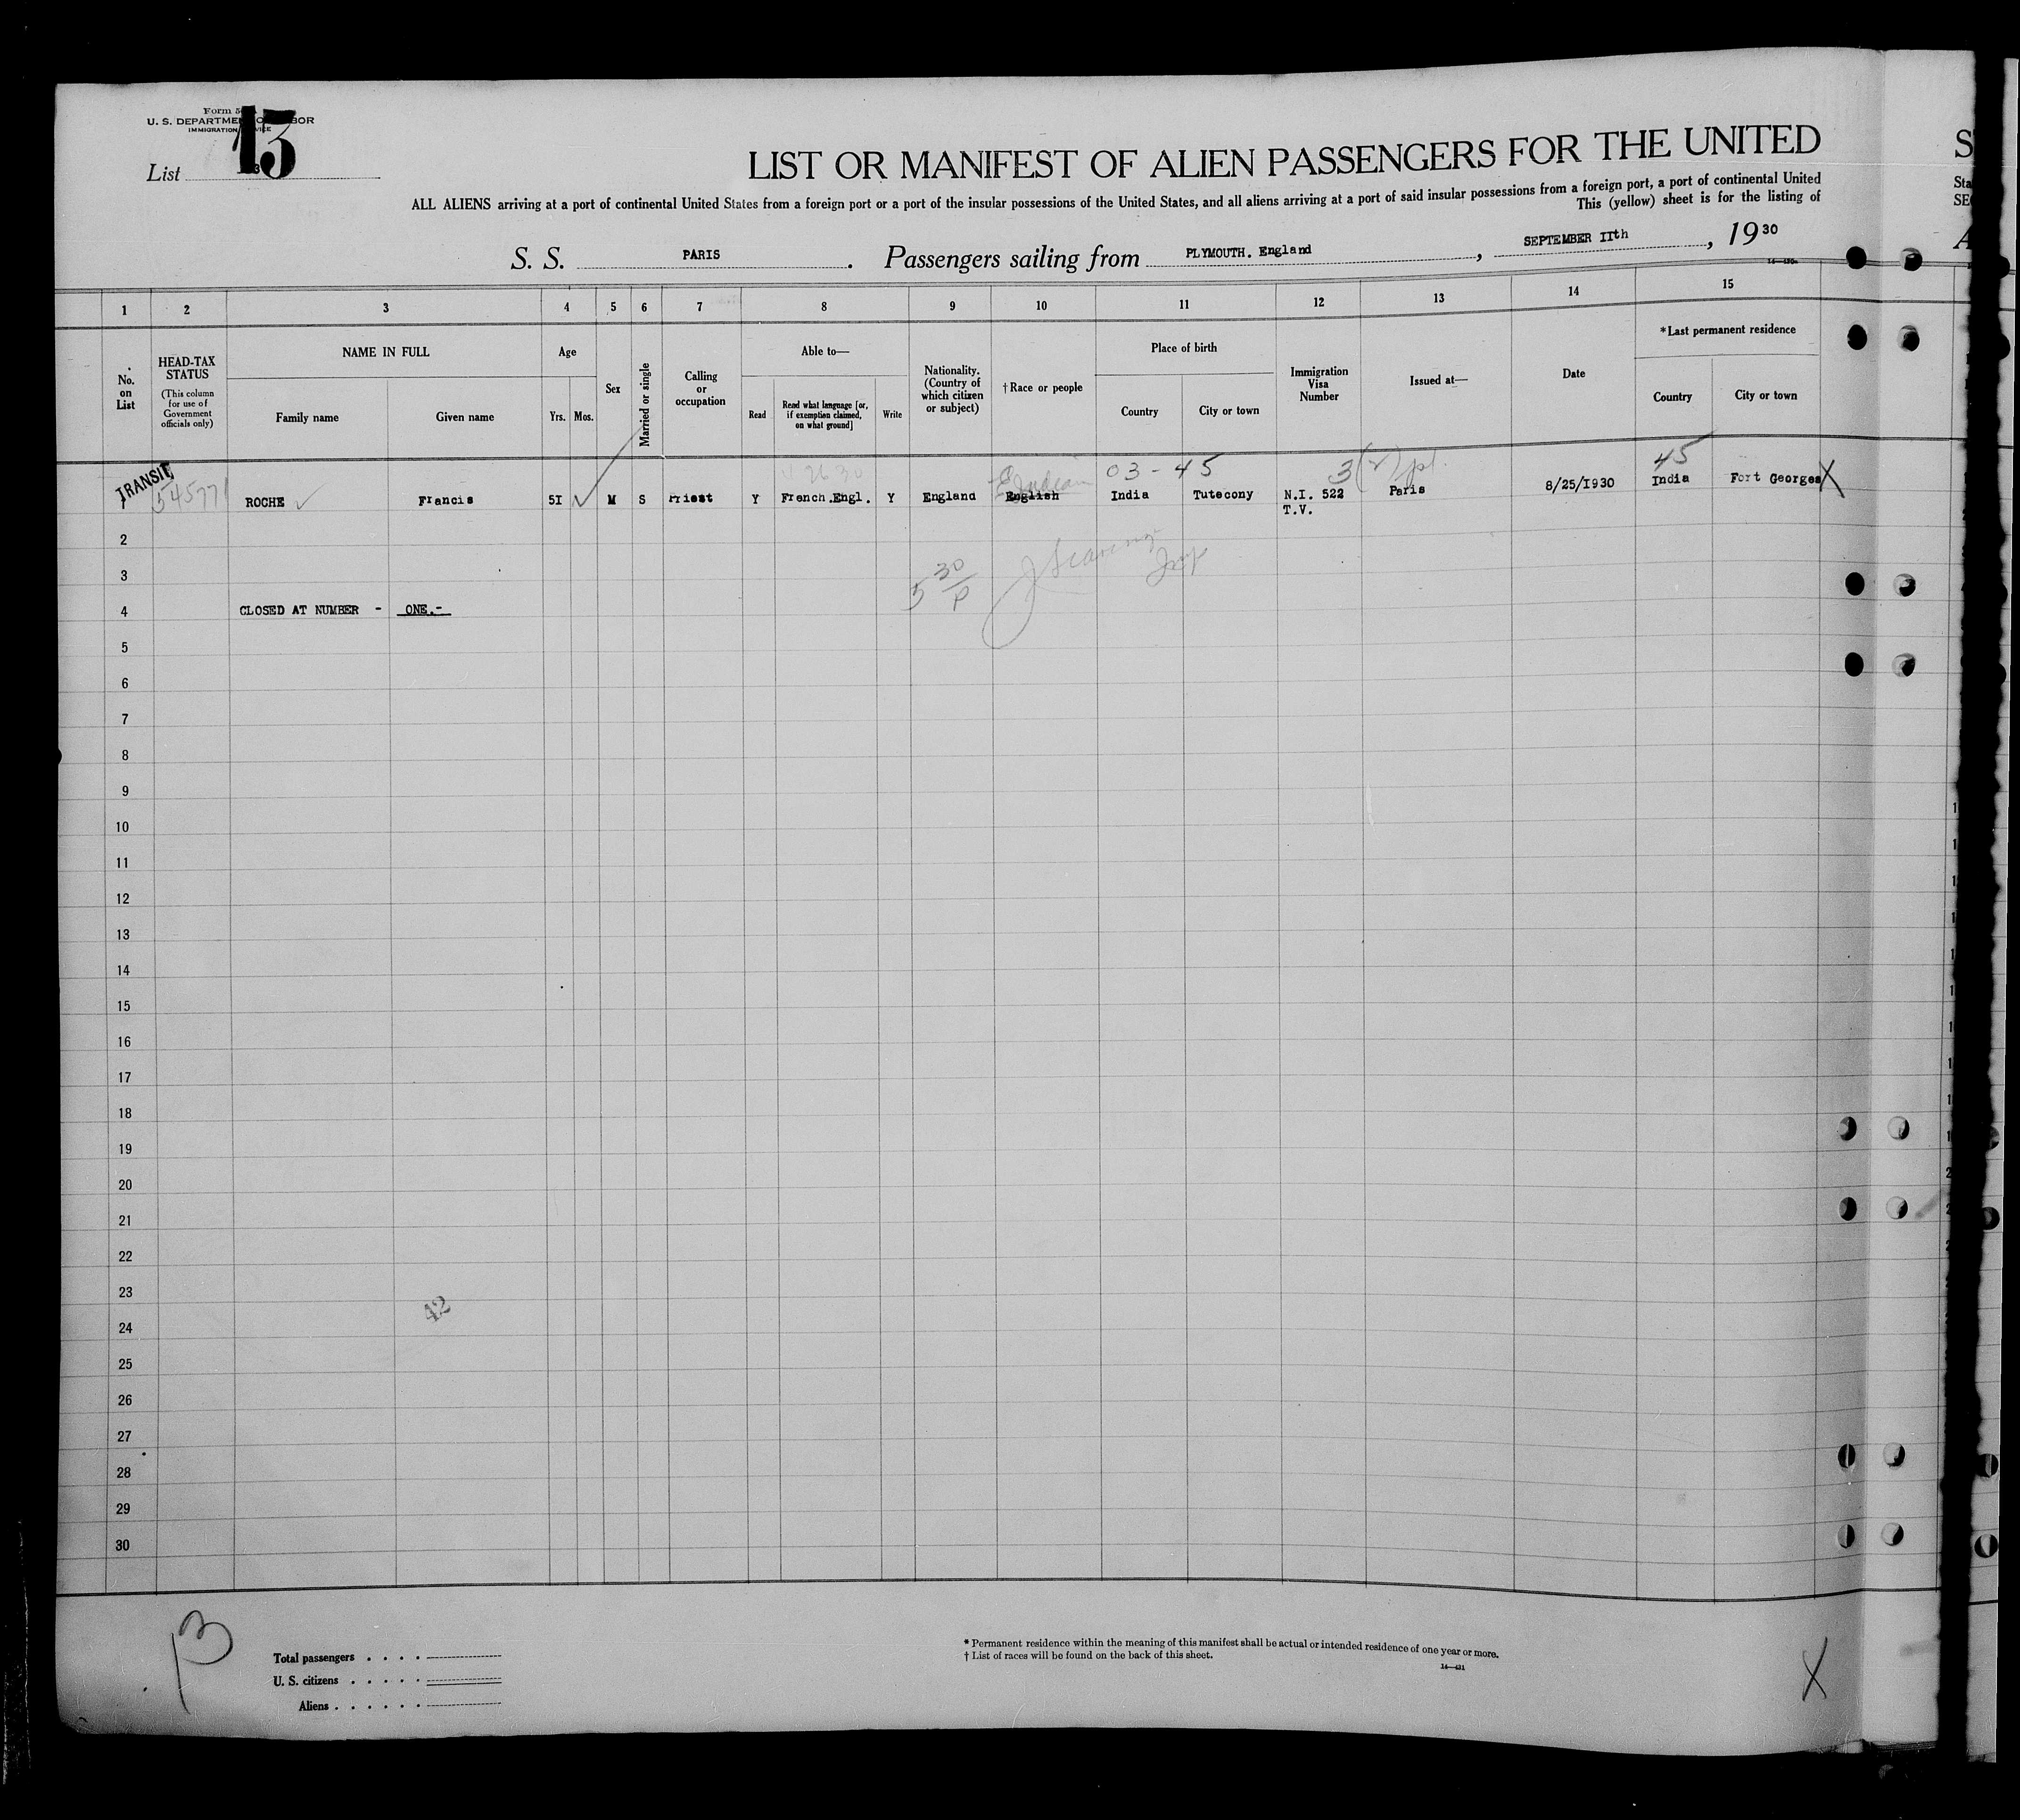 Form 5
U. S. DEPARTMENT OF LABOR
IMMIGRATION SERVICE
13
List
LIST OR MANIFEST OF ALIEN PASSENGERS FOR THE UNITED
ALL ALIENS arriving at a port of continental United States from a foreign port or a port of the insular possessions of the United States, and all aliens arriving at a port of said insular possessions from a foreign port, a port of continental United
This (yellow) sheet is for the listing of
S. S. PARIS. Passengers sailing from PLYMOUTH. England, SEPTEMBER IIth, 1930
1 2 3 4 5 6 7 8 9 10 11 12 13 14 15
No. on List
HEAD-TAX STATUS
(This column for use of Government officials only)
NAME IN FULL
Family name
Given name
Age
Yrs. Mos.
Sex
Married or single
Calling or occupation
Able to—
Read
Read what language [or, if exemption claimed, on what ground]
Write
Nationality. (Country of which citizen or subject)
†Race or people
Place of birth
Country
City or town
Immigration Visa Number
Issued at—
Date
*Last permanent residence
Country
City or town
03-45
45
TRANSIT
54577
E Indian
1 ROCHE Francis 5I M S Priest Y French.Engl. Y England English India Tutecony N.I. 522 Paris 8/25/1930 India Fort Georges X
T.V.
2
3
5 30/P
4 CLOSED AT NUMBER - ONE.-
5
6
7
8
9
10
11
12
13
14
15
16
17
18
19
20
21
22
23
42
24
25
26
27
28
29
30
13
Total passengers
U. S. citizens
Aliens
* Permanent residence within the meaning of this manifest shall be actual or intended residence of one year or more.
† List of races will be found on the back of this sheet.
14—431
X